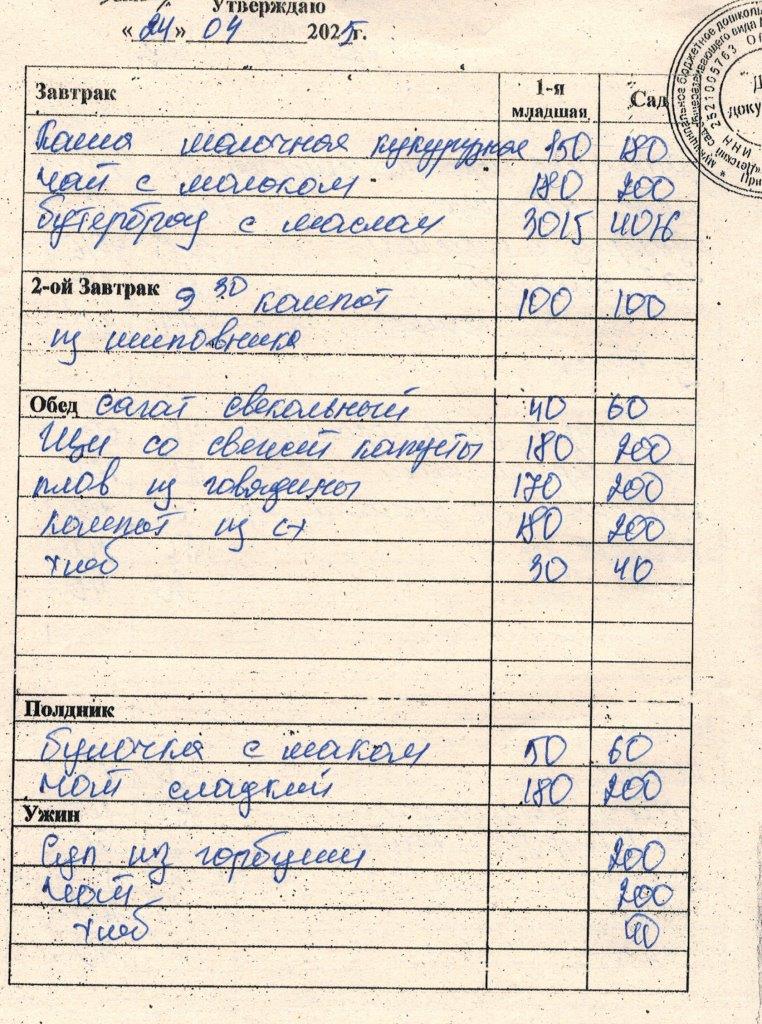 Утверждаю
«24» 04 2025г.
Завтрак 1-я младшая Сад
Каша молочная кукурузная 150 180
чай с молоком 180 200
бутерброд с маслом 30 40
2-ой Завтрак 9 30 компот 100 100
из шиповника
Обед салат свекольный 40 60
Щи со свежей капусты 180 200
плов из говядины 170 200
компот из с/х 180 200
хлеб 30 40
Полдник
булочка с маком 50 60
чай сладкий 180 200
Ужин
Суп из горбуши 200
чай 200
хлеб 40
Муниципальное бюджетное дошколь
общеразвивающего вида
ИНН 2521005763